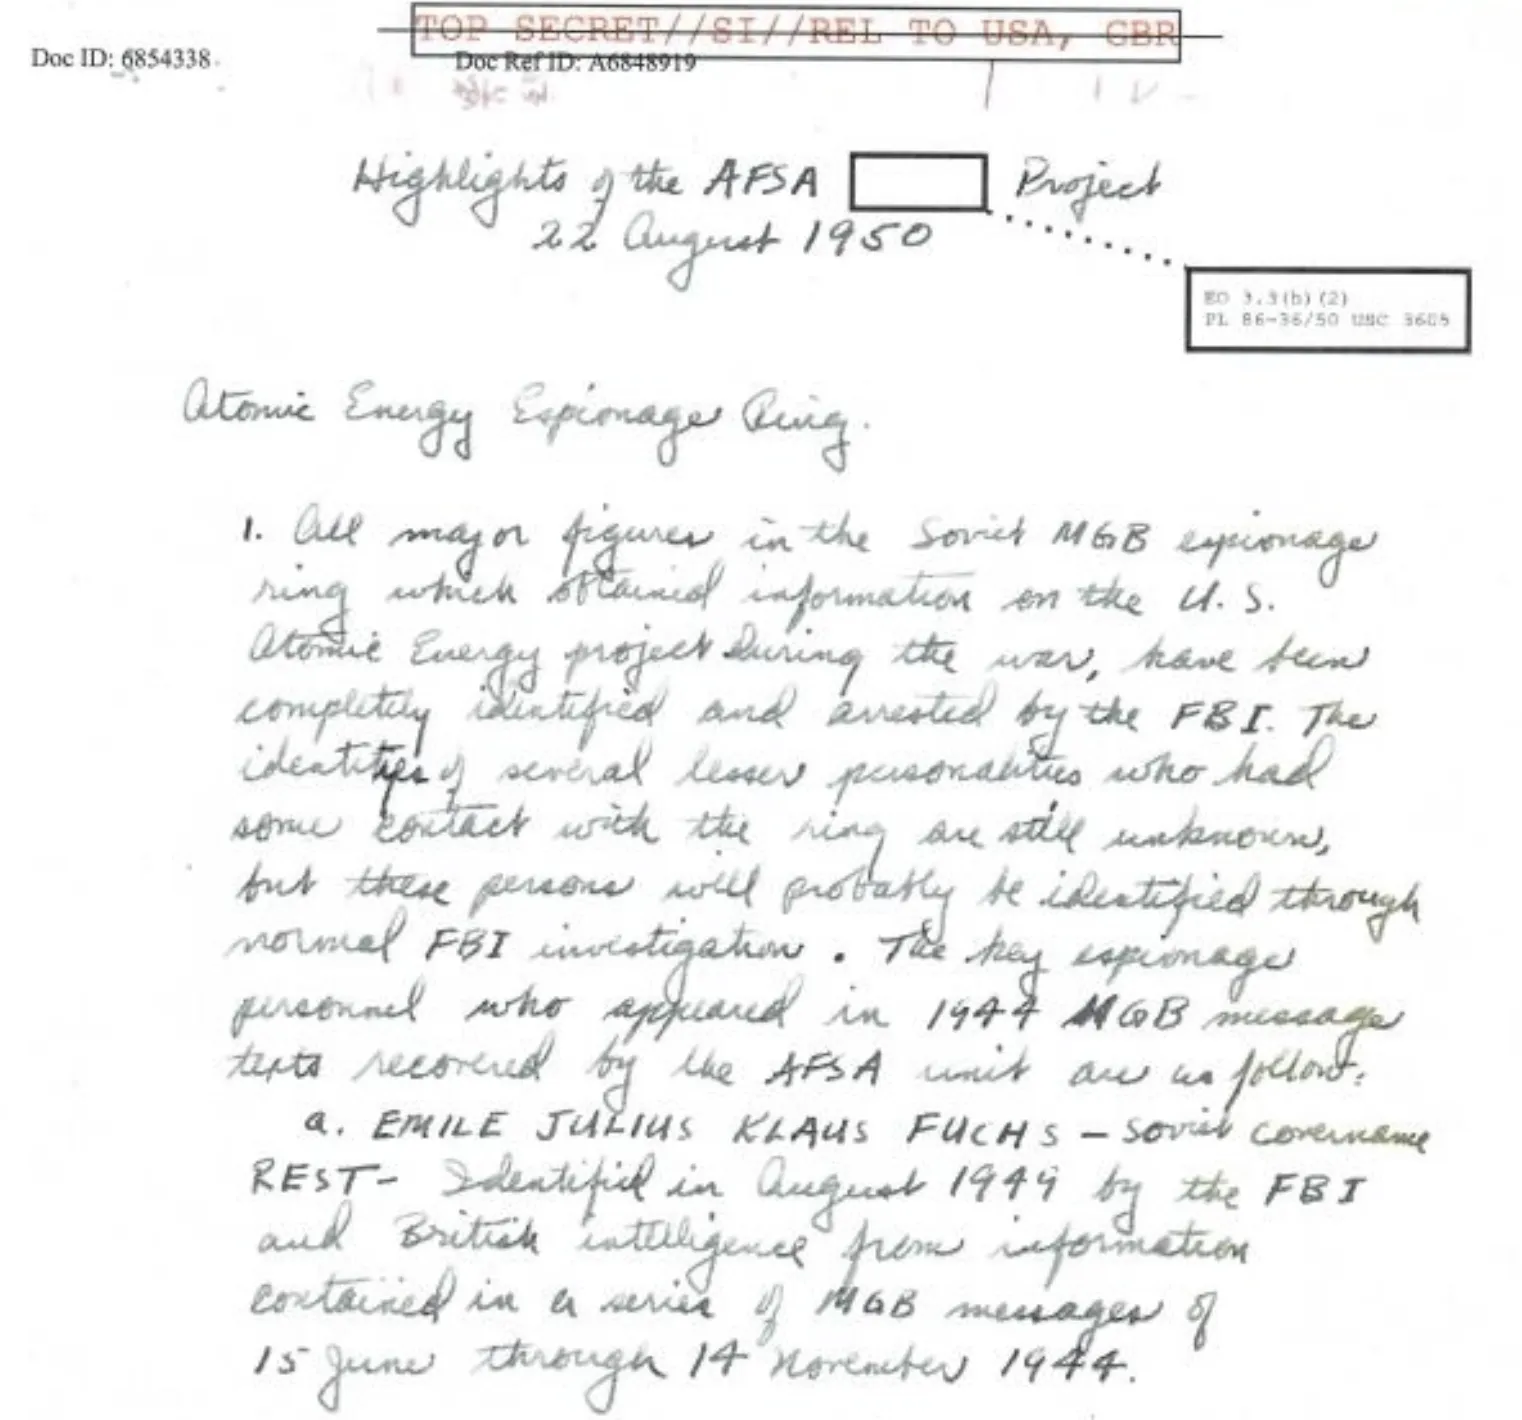 TOP SECRET//SI//REL TO USA, GBR
Doc ID: 6854338
Doc Ref ID: A6848919
Highlights of the AFSA Project
22 August 1950
EO 3.3(b)(2)
PL 86-36/50 USC 3605
Atomic Energy Espionage Ring.
1. All major figures in the Soviet MGB espionage
ring which obtained information on the U.S.
Atomic Energy project during the war, have been
completely identified and arrested by the FBI. The
identities of several lesser personalities who had
some contact with the ring are still unknown,
but these persons will probably be identified through
normal FBI investigation. The key espionage
personnel who appeared in 1944 MGB message
texts recovered by the AFSA unit are as follow:
a. EMILE JULIUS KLAUS FUCHS - Soviet covername
REST - Identified in August 1949 by the FBI
and British intelligence from information
contained in a series of MGB messages of
15 June through 14 November 1944.